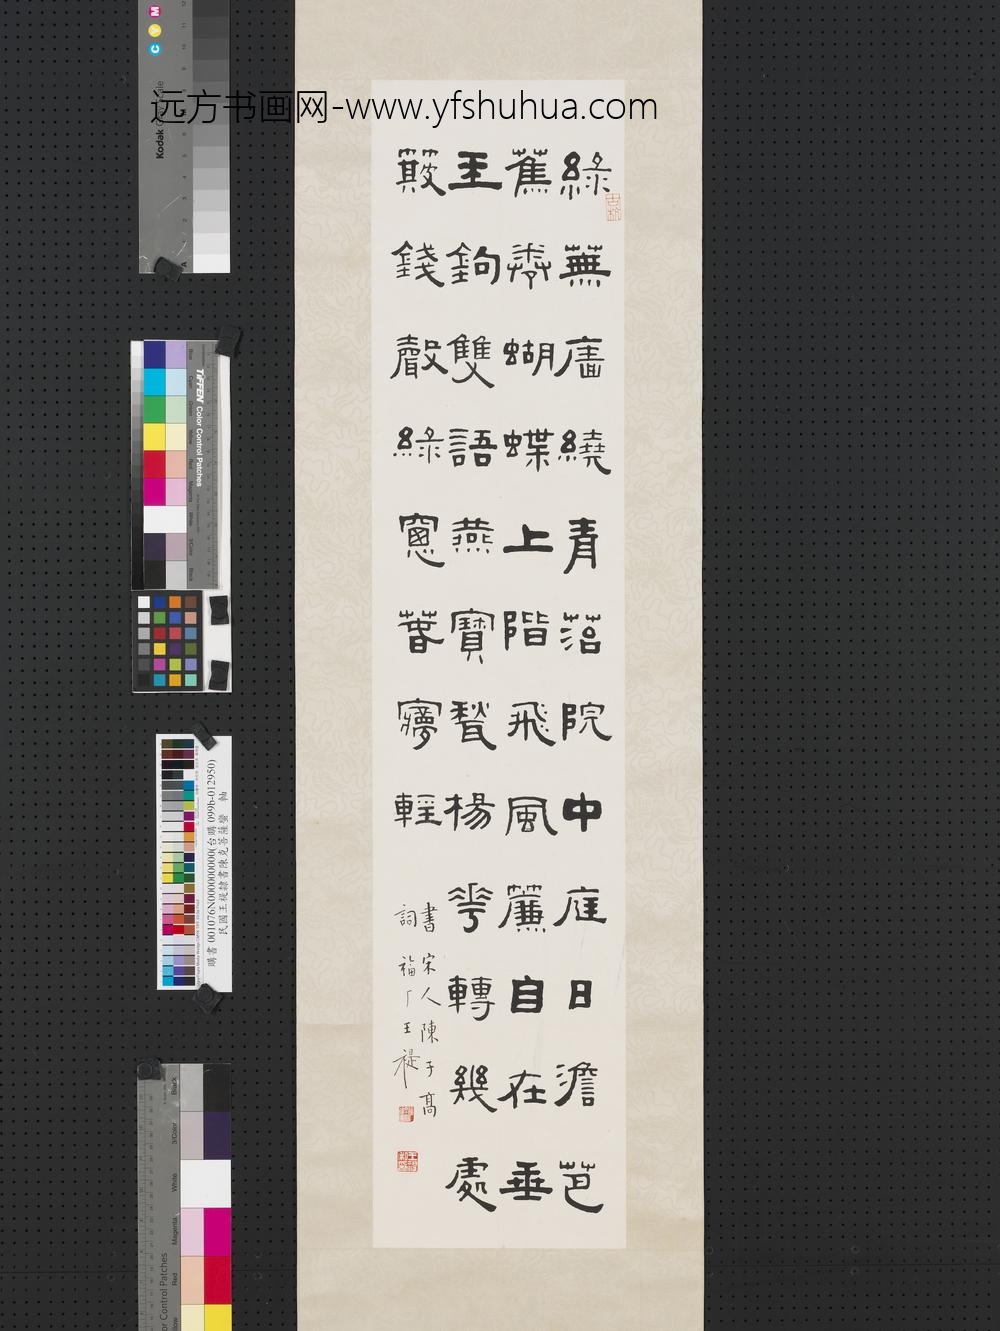 远方书画网-www.yfshuhua.com
綠蕪廧繞青落院中庭日澹芭
蕉卷蝴蝶上階飛風簾自在垂
玉鉤雙語燕寶甃楊花轉幾處
簸錢聲綠窗春夢輕
書宋人陳子高
詞福厂王禔
Kodak
TIFFEN Color Control Patches
購書 001076N000000000(台購 099b-012950)
民國王禔隸書陳克菩薩蠻 軸
Black
3/Color
White
Magenta
Red
Yellow
or Control Patches